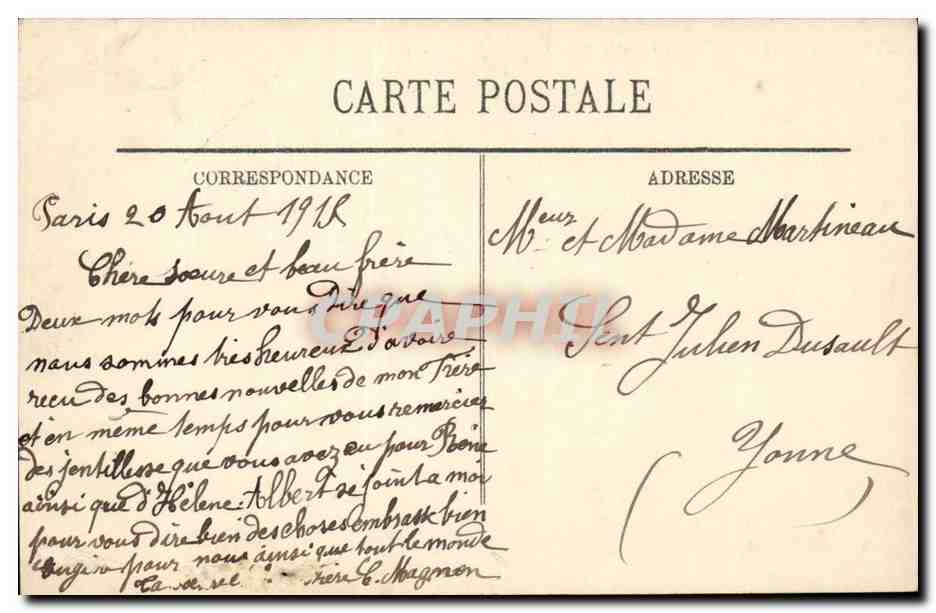 CARTE POSTALE
CORRESPONDANCE
ADRESSE
Paris 20 Aout 1915
Chère soeure et beau frère
Deux mots pour vous dire que
nous sommes très heureux d'avoire
recu des bonnes nouvelles de mon Frère
et en même temps pour vous remercier
des jentillesse que vous avez eu pour Reine
ainsi que d'Hélène. Albert se joint a moi
pour vous dire bien des choses embrass bien
pour nous ainsi que tout le monde
C. Magnon
Meur et Madame Martineau
Sent Julien Dusault
Yonne
CPAPHIL